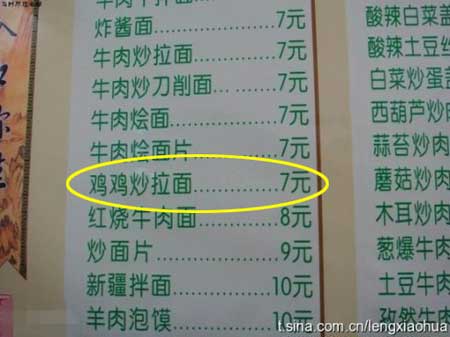 炸酱面............7元
牛肉炒拉面........7元
牛肉炒刀削面....7元
牛肉烩面..........7元
牛肉烩面片........7元
鸡鸡炒拉面............7元
红烧牛肉面........8元
炒面片............9元
新疆拌面..........10元
羊肉泡馍..........10元
酸辣白菜盖
酸辣土豆丝
白菜炒蛋盖
西葫芦炒
蒜苔炒肉
蘑菇炒肉
木耳炒肉
葱爆牛肉
土豆牛肉
孜然牛肉
t.sina.com.cn/lengxiaohua